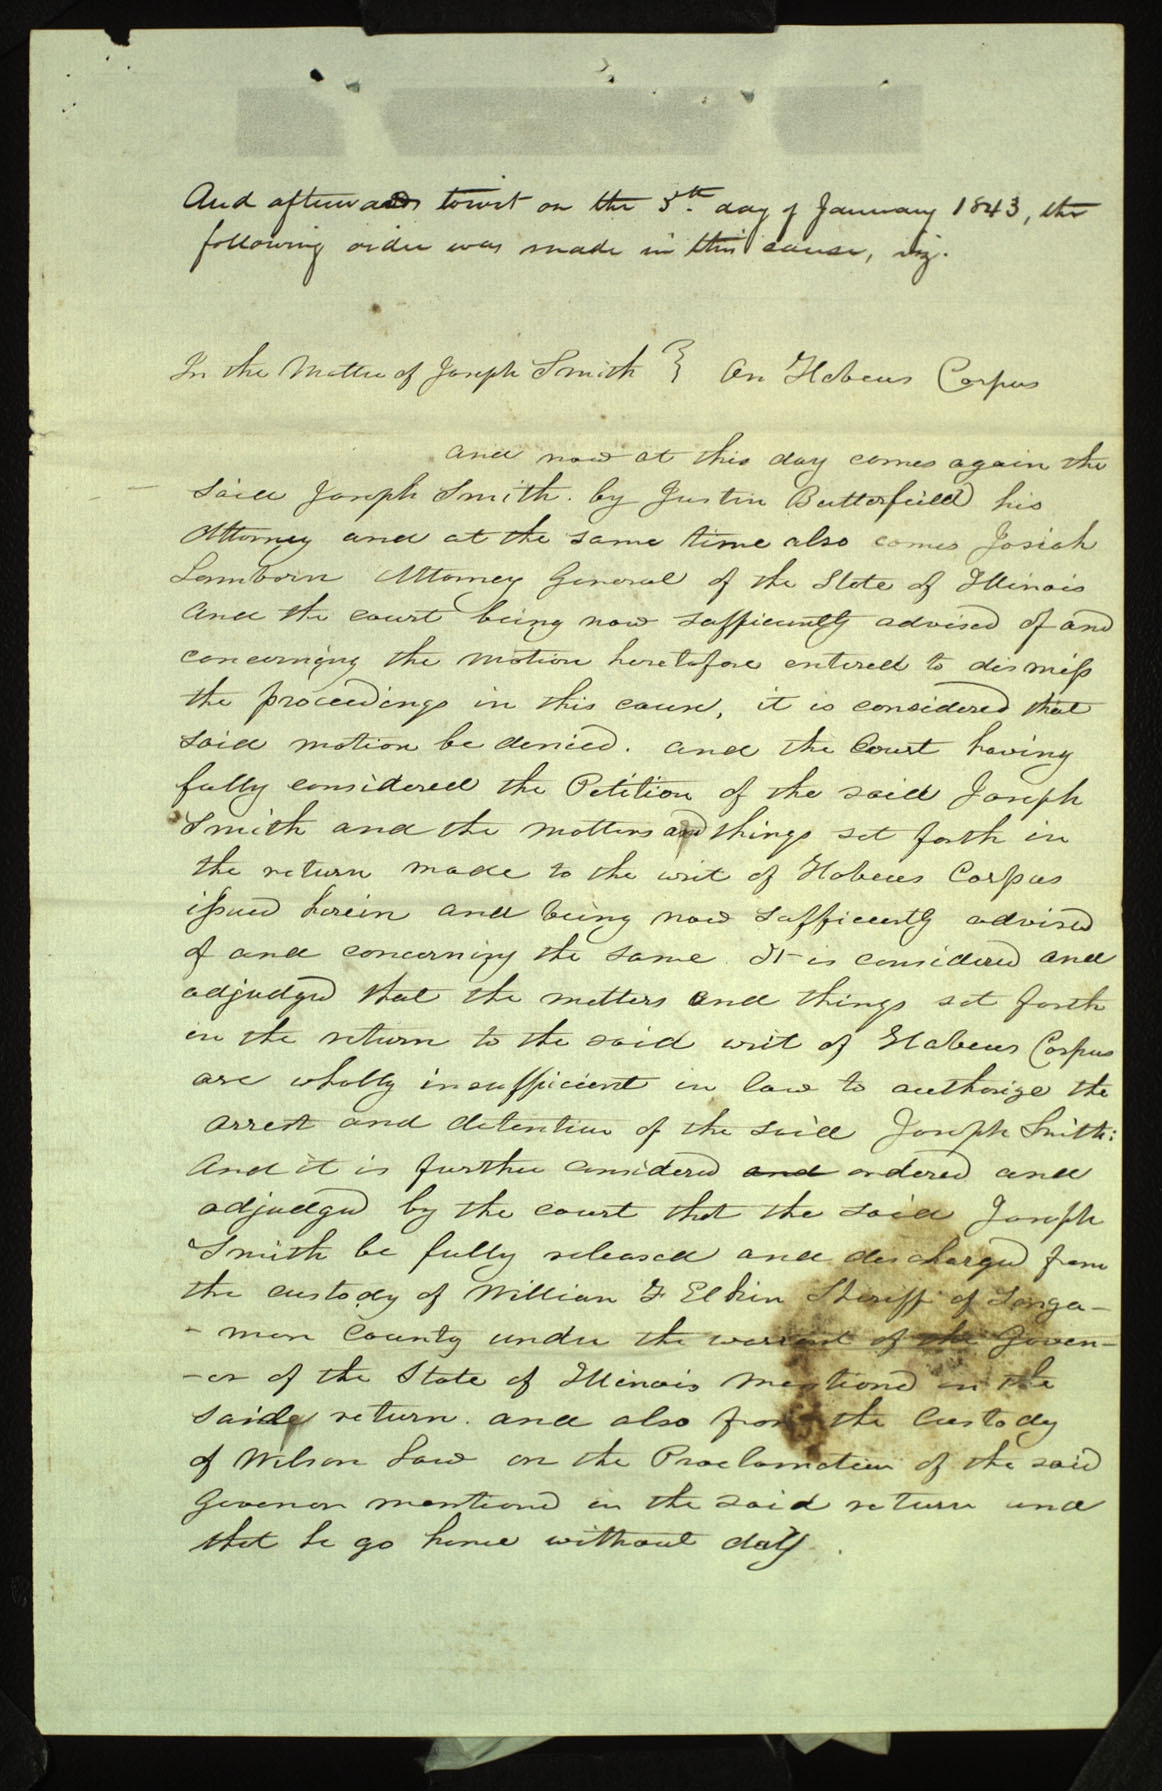 And afterwards towit on the 5th day of January 1843, the
following order was made in this cause, viz.
In the Matter of Joseph Smith } On Habeus Corpus
and now at this day comes again the
said Joseph Smith. by Justin Butterfield his
Attorney and at the same time also comes Josiah
Lamborn Attorney General of the State of Illinois
and the court being now sufficiently advised of and
concerning the motion heretofore entered to dismiss
the proceedings in this cause, it is considered that
said motion be denied. and the Court having
fully considered the Petition of the said Joseph
Smith and the matters and things set forth in
the return made to the writ of Habeus Corpus
issued herein and being now sufficiently advised
of and concerning the same It is considered and
adjudged that the matters and things set forth
in the return to the said writ of Habeus Corpus
are wholly insufficient in law to authorize the
arrest and detention of the said Joseph Smith:
And it is further considered and ordered and
adjudged by the court that the said Joseph
Smith be fully released and discharged from
the custody of William F Elkin Sheriff of Sanga-
- mon County under the warrant of the Goven-
-or of the State of Illinois mentioned in the
said return. and also from the Custody
of Wilson Law on the Proclamation of the said
Govenor mentioned in the said return and
that he go hence without day.